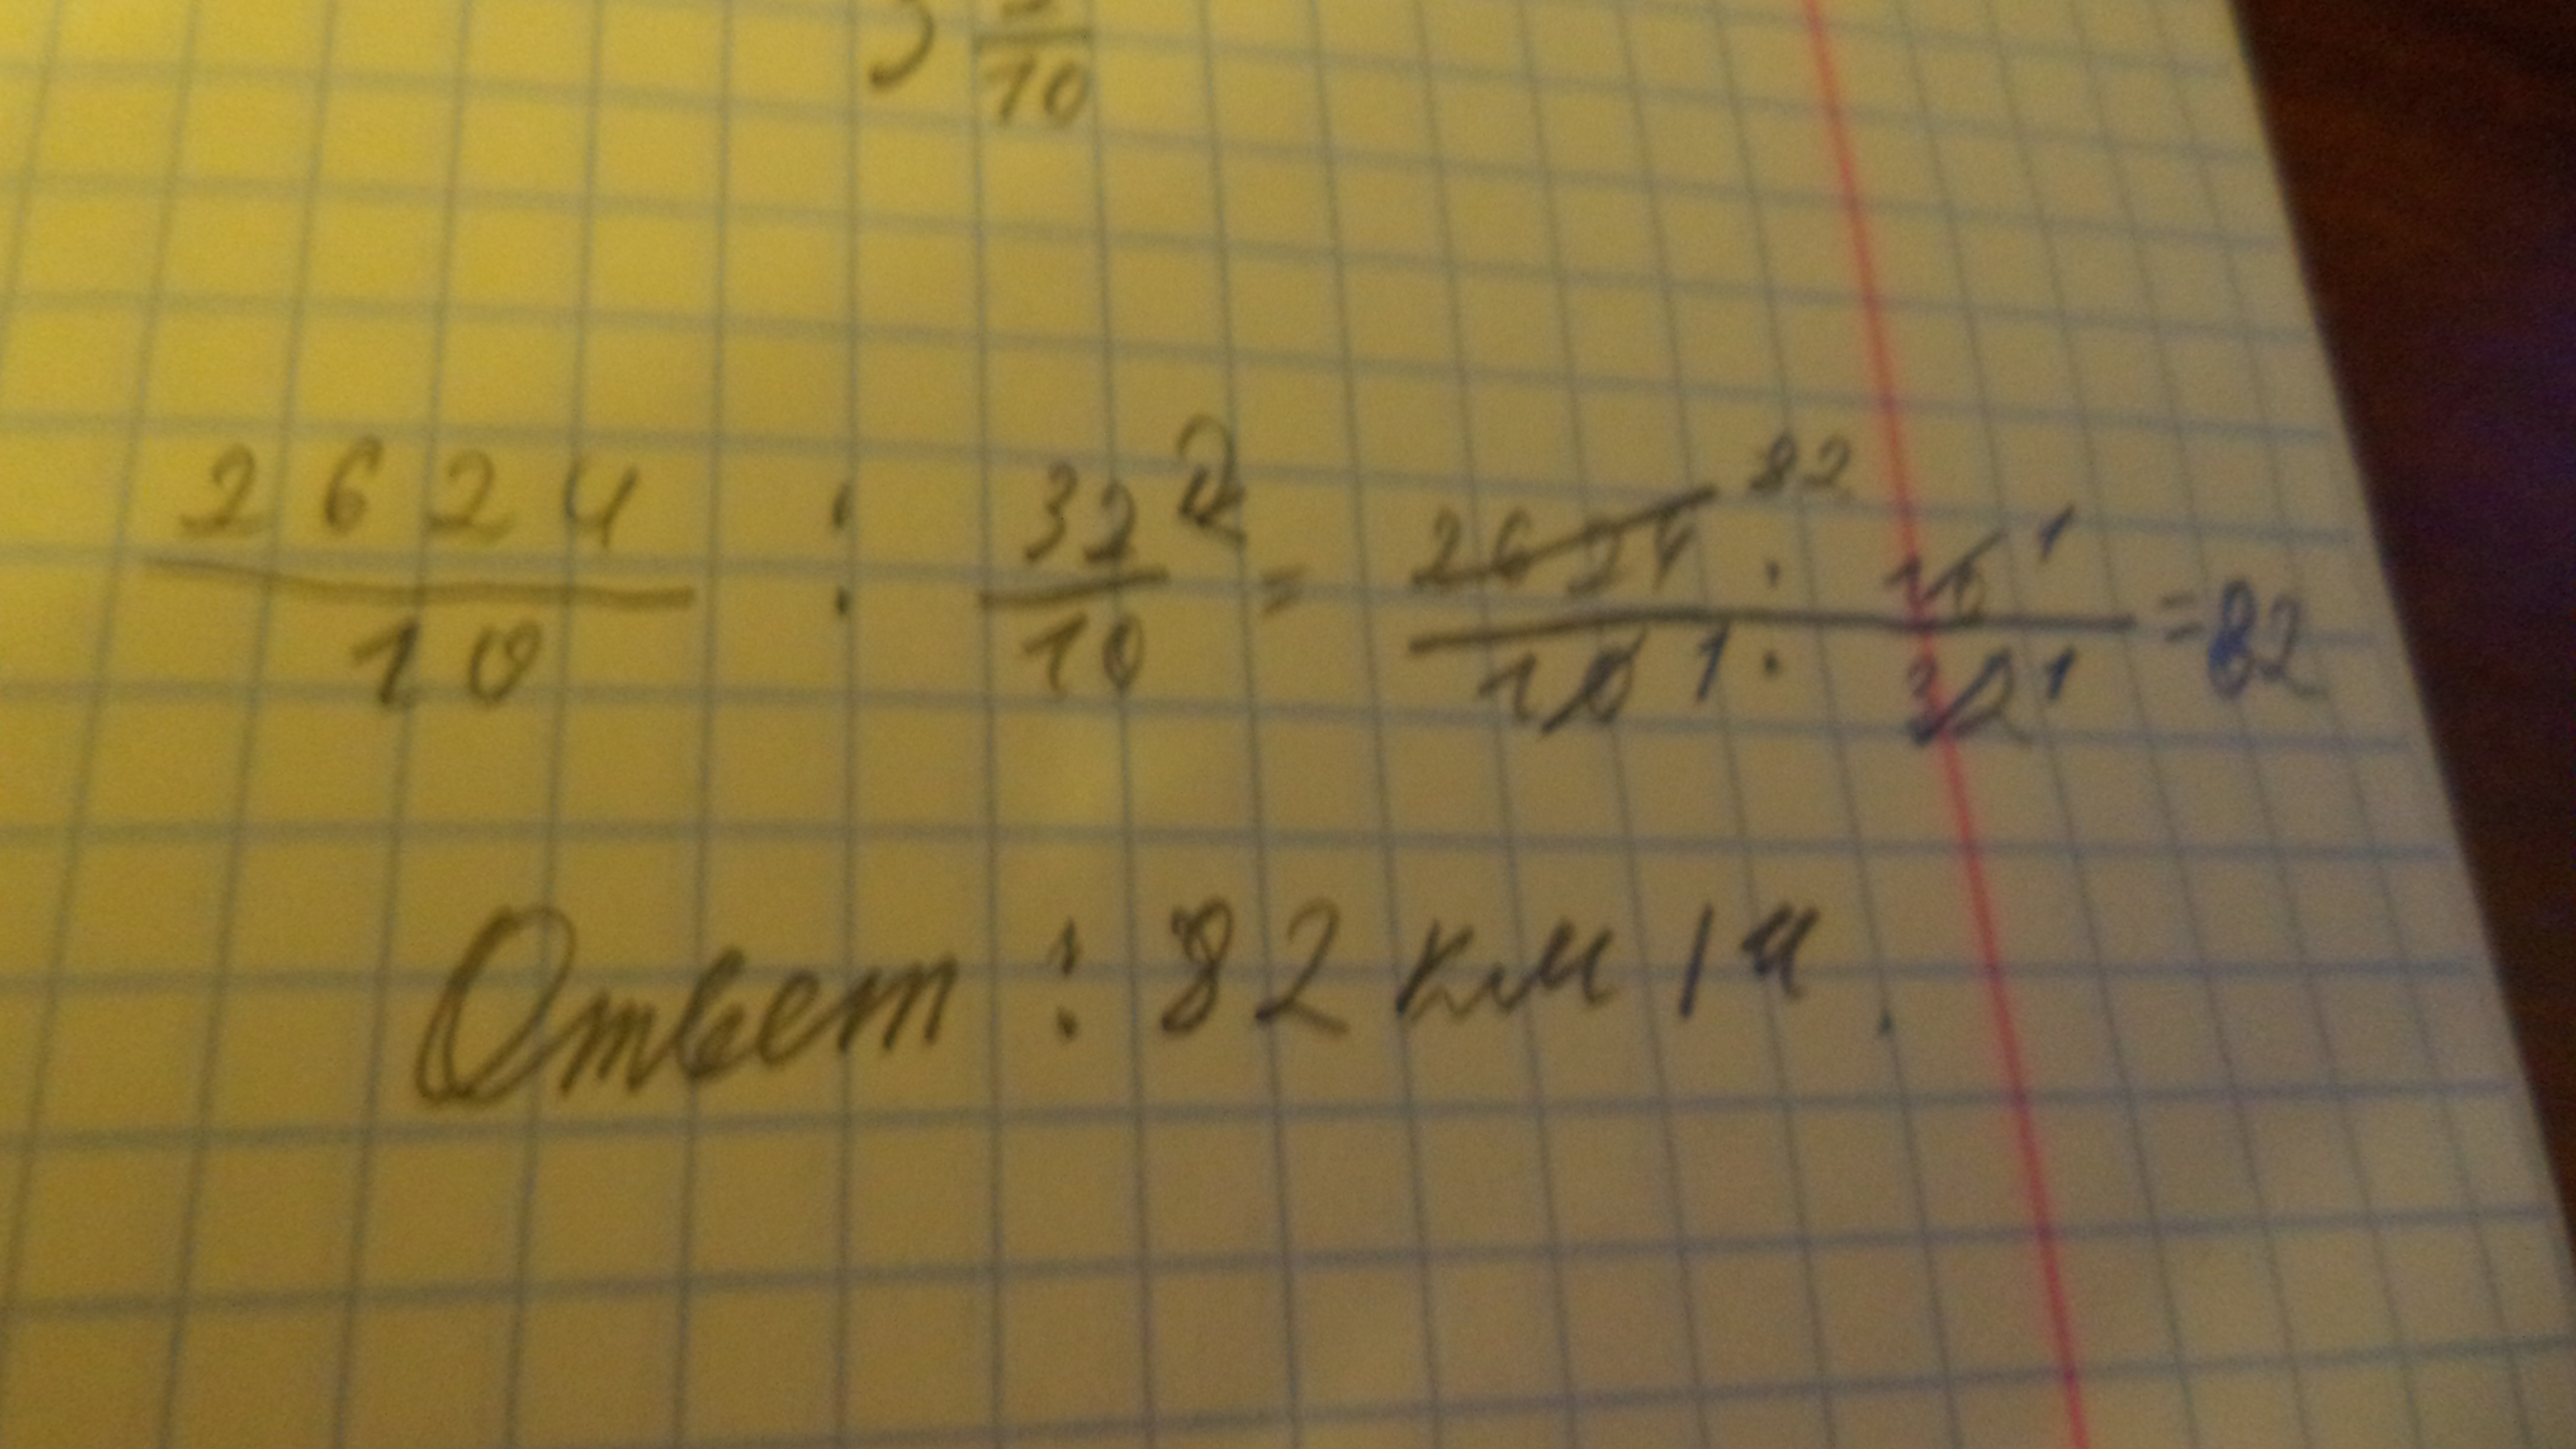 3 /10
2624/10 : 32/10 = 2624 82 · 10 1 / 10 1 · 32 1 = 82
Ответ : 82 км/ч.